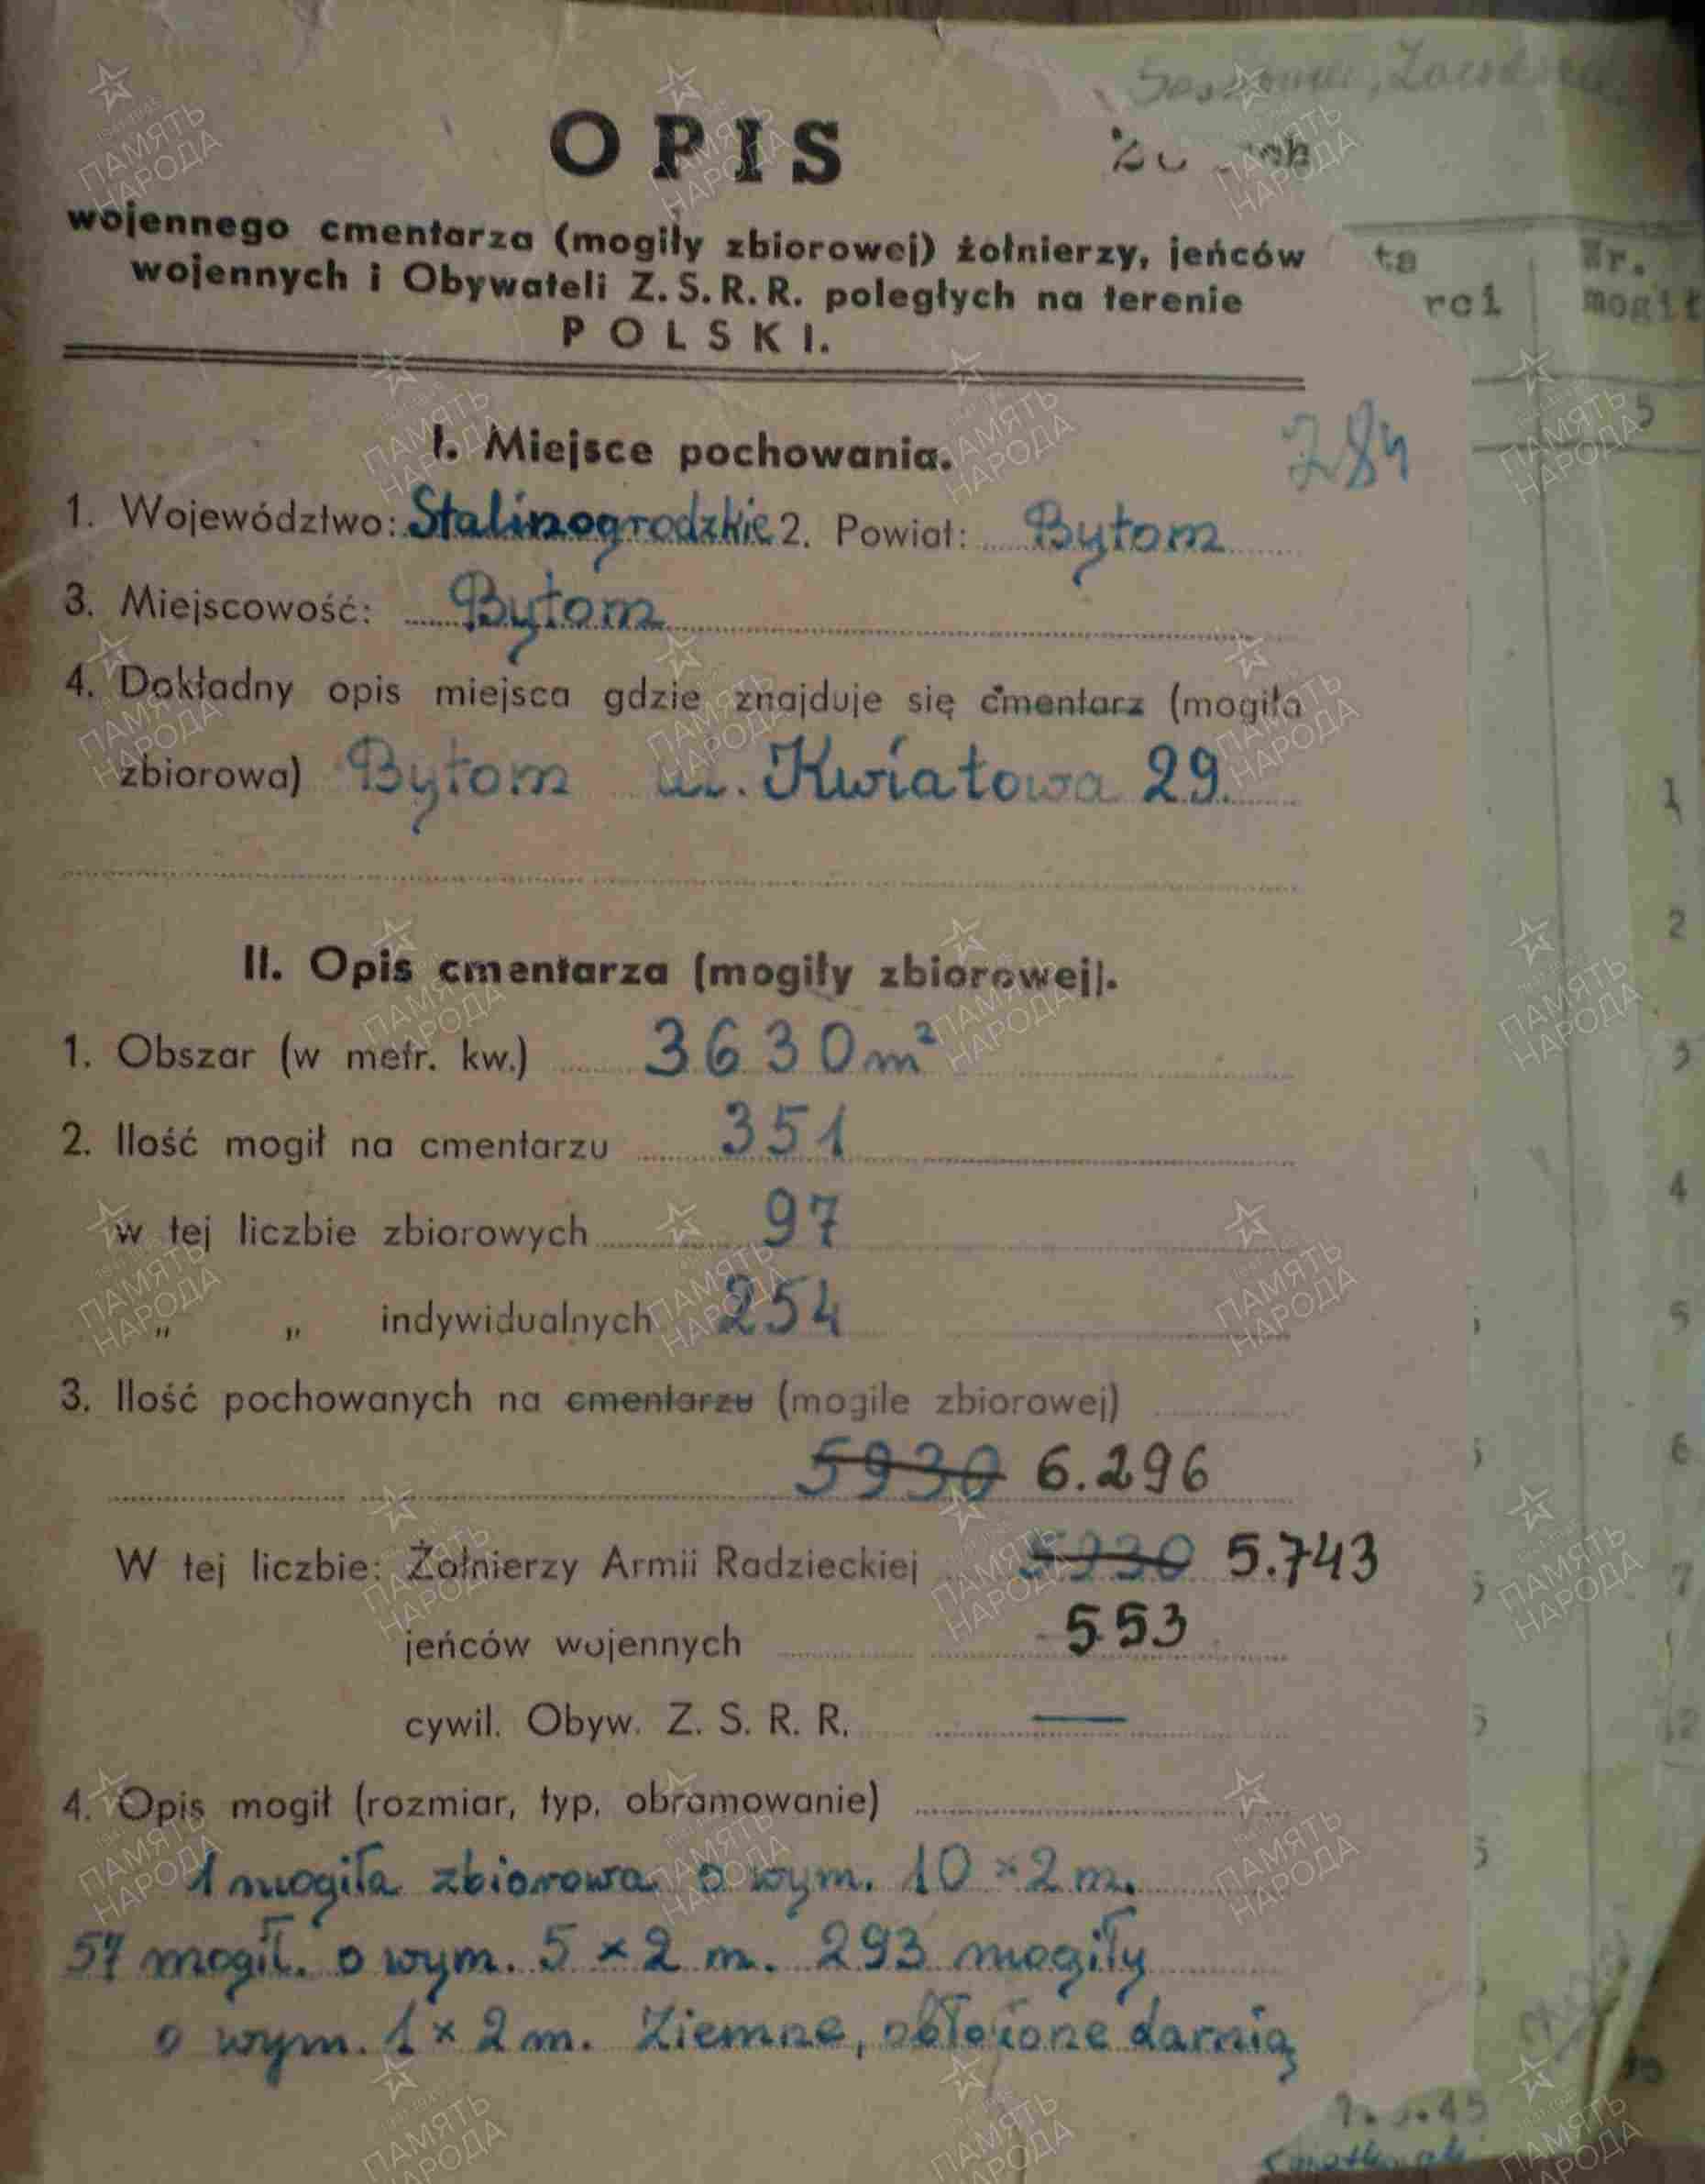 OPIS
wojennego cmentarza (mogiły zbiorowej) żołnierzy, jeńców
wojennych i Obywateli Z.S.R.R. poległych na terenie
POLSKI.
ta
rci
Nr.
mogił
5
I. Miejsce pochowania.
284
1. Województwo: Stalinogrodzkie 2. Powiat: Bytom
3. Miejscowość: Bytom
4. Dokładny opis miejsca gdzie znajduje się cmentarz (mogiła
zbiorowa) Bytom ul. Kwiatowa 29.
II. Opis cmentarza (mogiły zbiorowej).
1. Obszar (w metr. kw.) 3630 m²
2. Ilość mogił na cmentarzu 351
w tej liczbie zbiorowych 97
„ „ indywidualnych 254
3. Ilość pochowanych na cmentarzu (mogile zbiorowej)
5930 6.296
W tej liczbie: Żołnierzy Armii Radzieckiej 5930 5.743
jeńców wojennych 553
cywil. Obyw. Z. S. R. R. —
4. Opis mogił (rozmiar, typ, obramowanie)
1 mogiła zbiorowa o wym. 10 × 2 m.
57 mogił. o wym. 5 × 2 m. 293 mogiły
o wym. 1 × 2 m. Ziemne, obłożone darnią
1
2
3
4
5
6
7
ПАМЯТЬ
НАРОДА